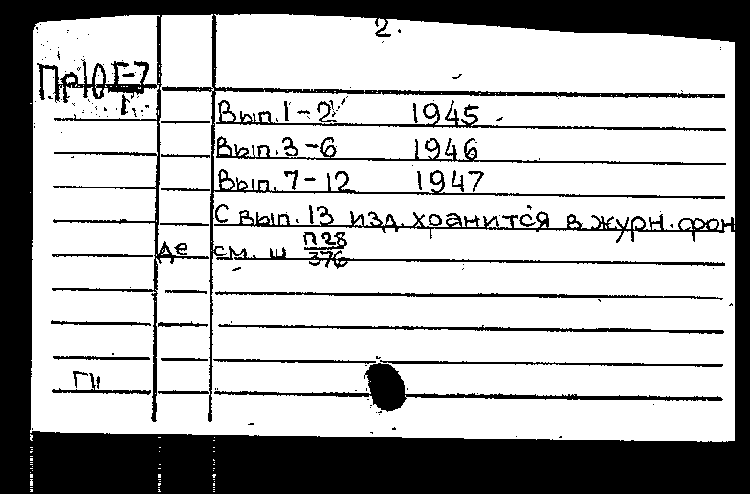 2.
Пр10 Г-7/1
Вып. 1-2 1945
Вып. 3-6 1946
Вып. 7-12 1947
С вып. 13 изд. хранится в журн. фон
де см. ш П28/376